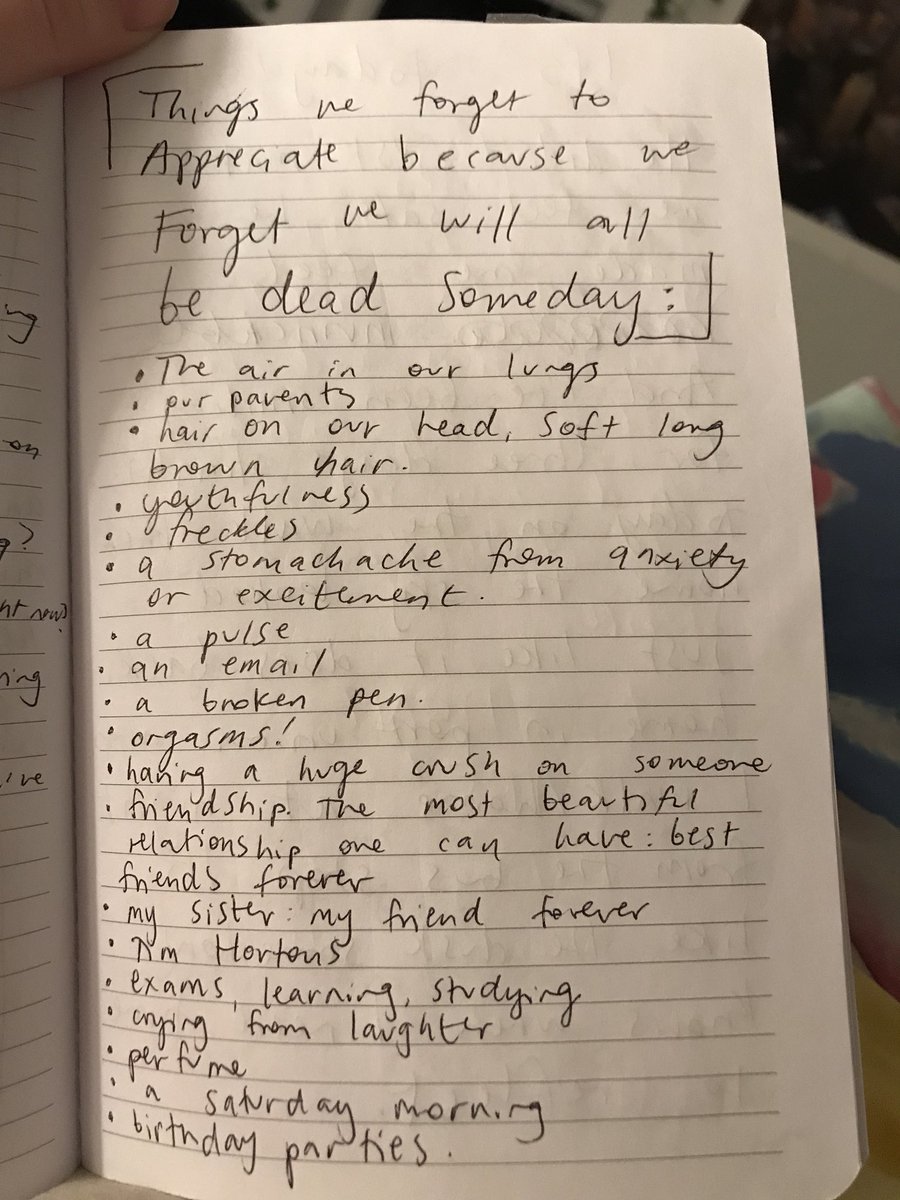 Things we forget to
Appreciate because we
Forget we will all
be dead someday:
• The air in our lungs
• our parents
• hair on our head, soft long
brown hair.
• youthfulness
• freckles
• a stomachache from anxiety
or exeitement.
• a pulse
• an email
• a broken pen.
• orgasms!
• having a huge crush on someone
• friendship. The most beautiful
relationship one can have: best
friends forever
• my sister: my friend forever
• Tim Hortons
• exams, learning, studying
• crying from laughter
• perfume
• a saturday morning
• birthday parties.
ing
on
?
ht now?
ning